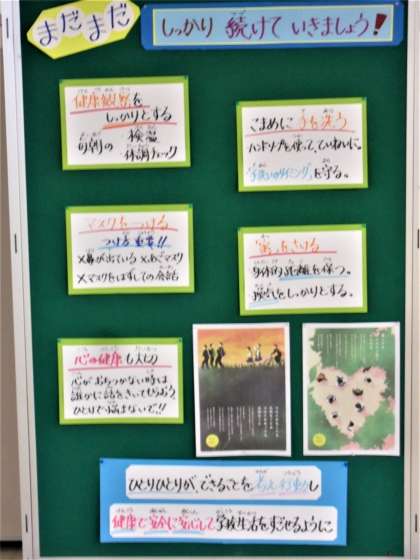 まだまだ
しっかり 続けて いきましょう!
健康観察を
しっかりとする
毎朝の 検温
体調チェック
こまめに 手を洗う
ハンドソープを使って、ていねいに。
「手洗いのタイミング」を守る。
マスクをつける
つけ方 重要!!
×鼻が出ている ×あごマスク
×マスクをはずしての会話
「密」をさける
身体的距離を保つ。
換気をしっかりとする。
心の健康も大切
心がおちつかない時は
誰かに話をきいてもらおう
ひとりで悩まないで!!
ひとりひとりが、できることを考え行動し
健康で安全に安心して学校生活をすごせるように